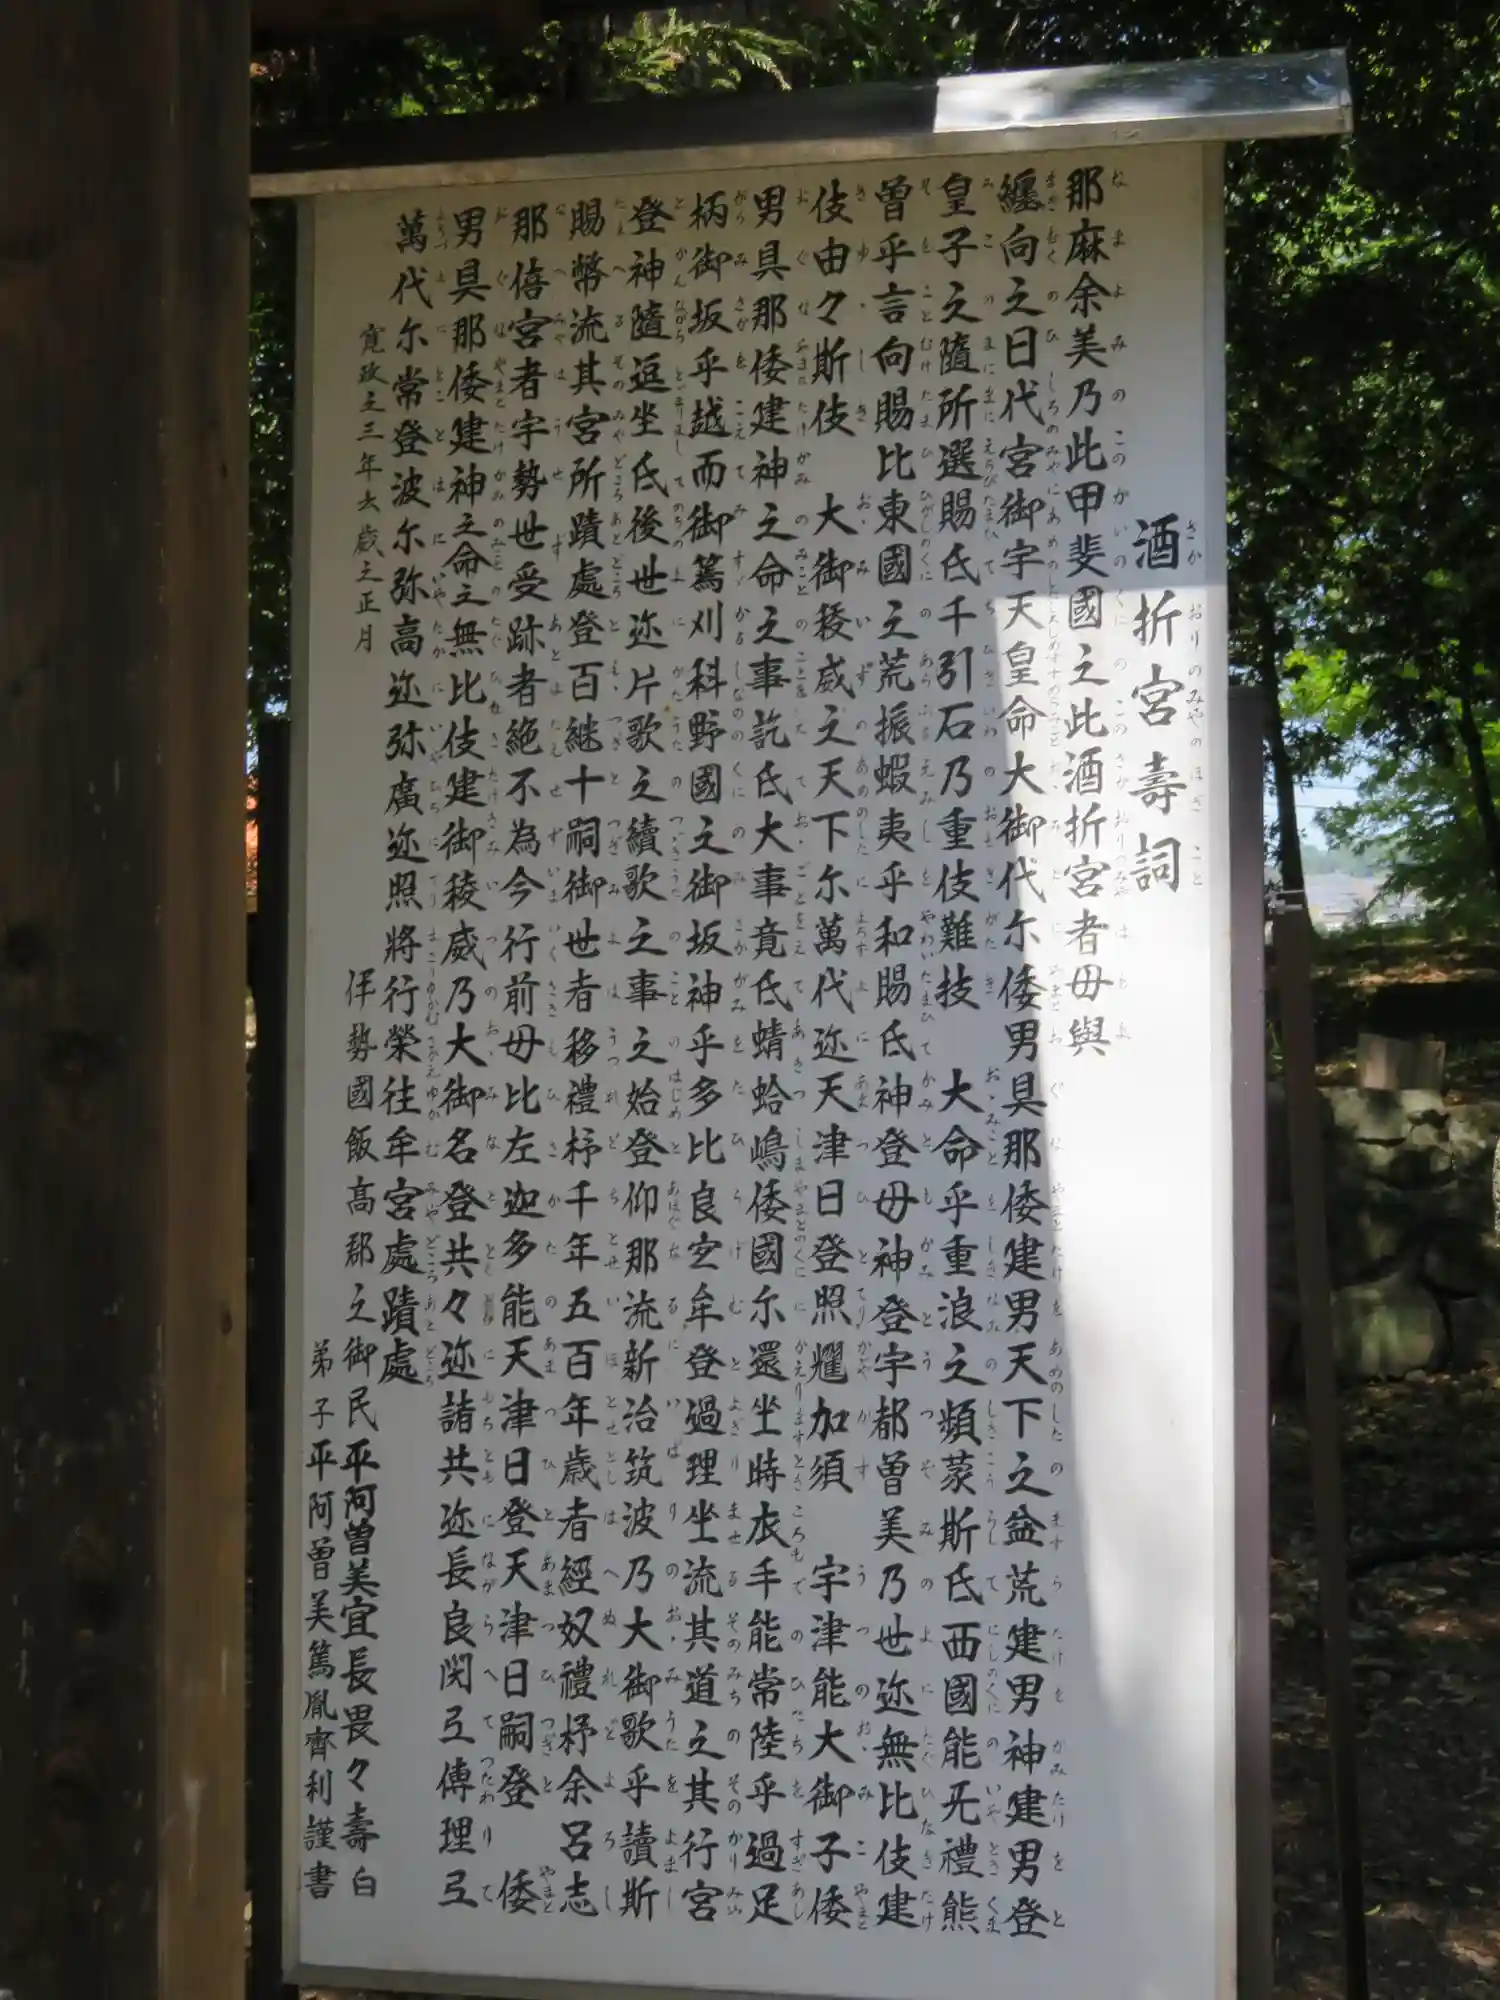 酒折宮壽詞
那麻余美乃此甲斐國之此酒折宮者毋與
纏向之日代宮御宇天皇命大御代尓倭男具那倭建男天下之益荒建男神建男登
皇子之隨所選賜氐千引石乃重伎難技　大命乎重浪之頻蒙斯氐西國能无禮熊
曽乎言向賜比東國之荒振蝦夷乎和賜氐神登毋神登宇都曽美乃世迩無比伎建
伎由々斯伎　大御稜威之天下尓萬代弥天津日登照耀加須　宇津能大御子倭
男具那倭建神之命之事訖氐大事竟氐蜻蛤嶋倭國尓還坐時衣手能常陸乎過足
柄御坂乎越而御篶刈科野國之御坂神乎多比良宜牟登過理坐流其道之其行宮
登神隨逗坐氐後世迩片歌之續歌之事之始登仰那流新治筑波乃大御歌乎讀斯
賜幣流其宮所蹟處登百継十嗣御世者移禮杼千年五百年歳者經奴禮杼余呂志
那倍宮者宇勢世受跡者絶不為今行前毋比左迦多能天津日登天津日嗣登　倭
男具那倭建神之命之無比伎建御稜威乃大御名登共々迩諸共迩長良閇弖傳理弖
萬代尓常登波尓弥高迩弥廣迩照將行榮往牟宮處蹟處
寛政之三年去歳之正月
伊勢國飯高郡之御民平阿曽美宜長畏々壽白
弟子平阿曽美篤胤齊利謹書